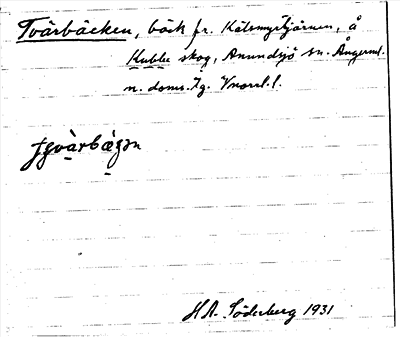 Tvärbäcken, bäck fr. Kälsmyrtjärnen, å
Kubbe skog, Anundsjö sn. Ångerml.
n. doms. Tg. Vnorrl. l.
H A. Söderberg 1931